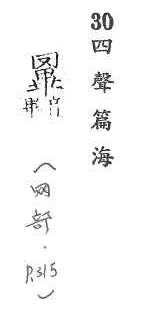 30 四聲篇海
（网部．P.315）